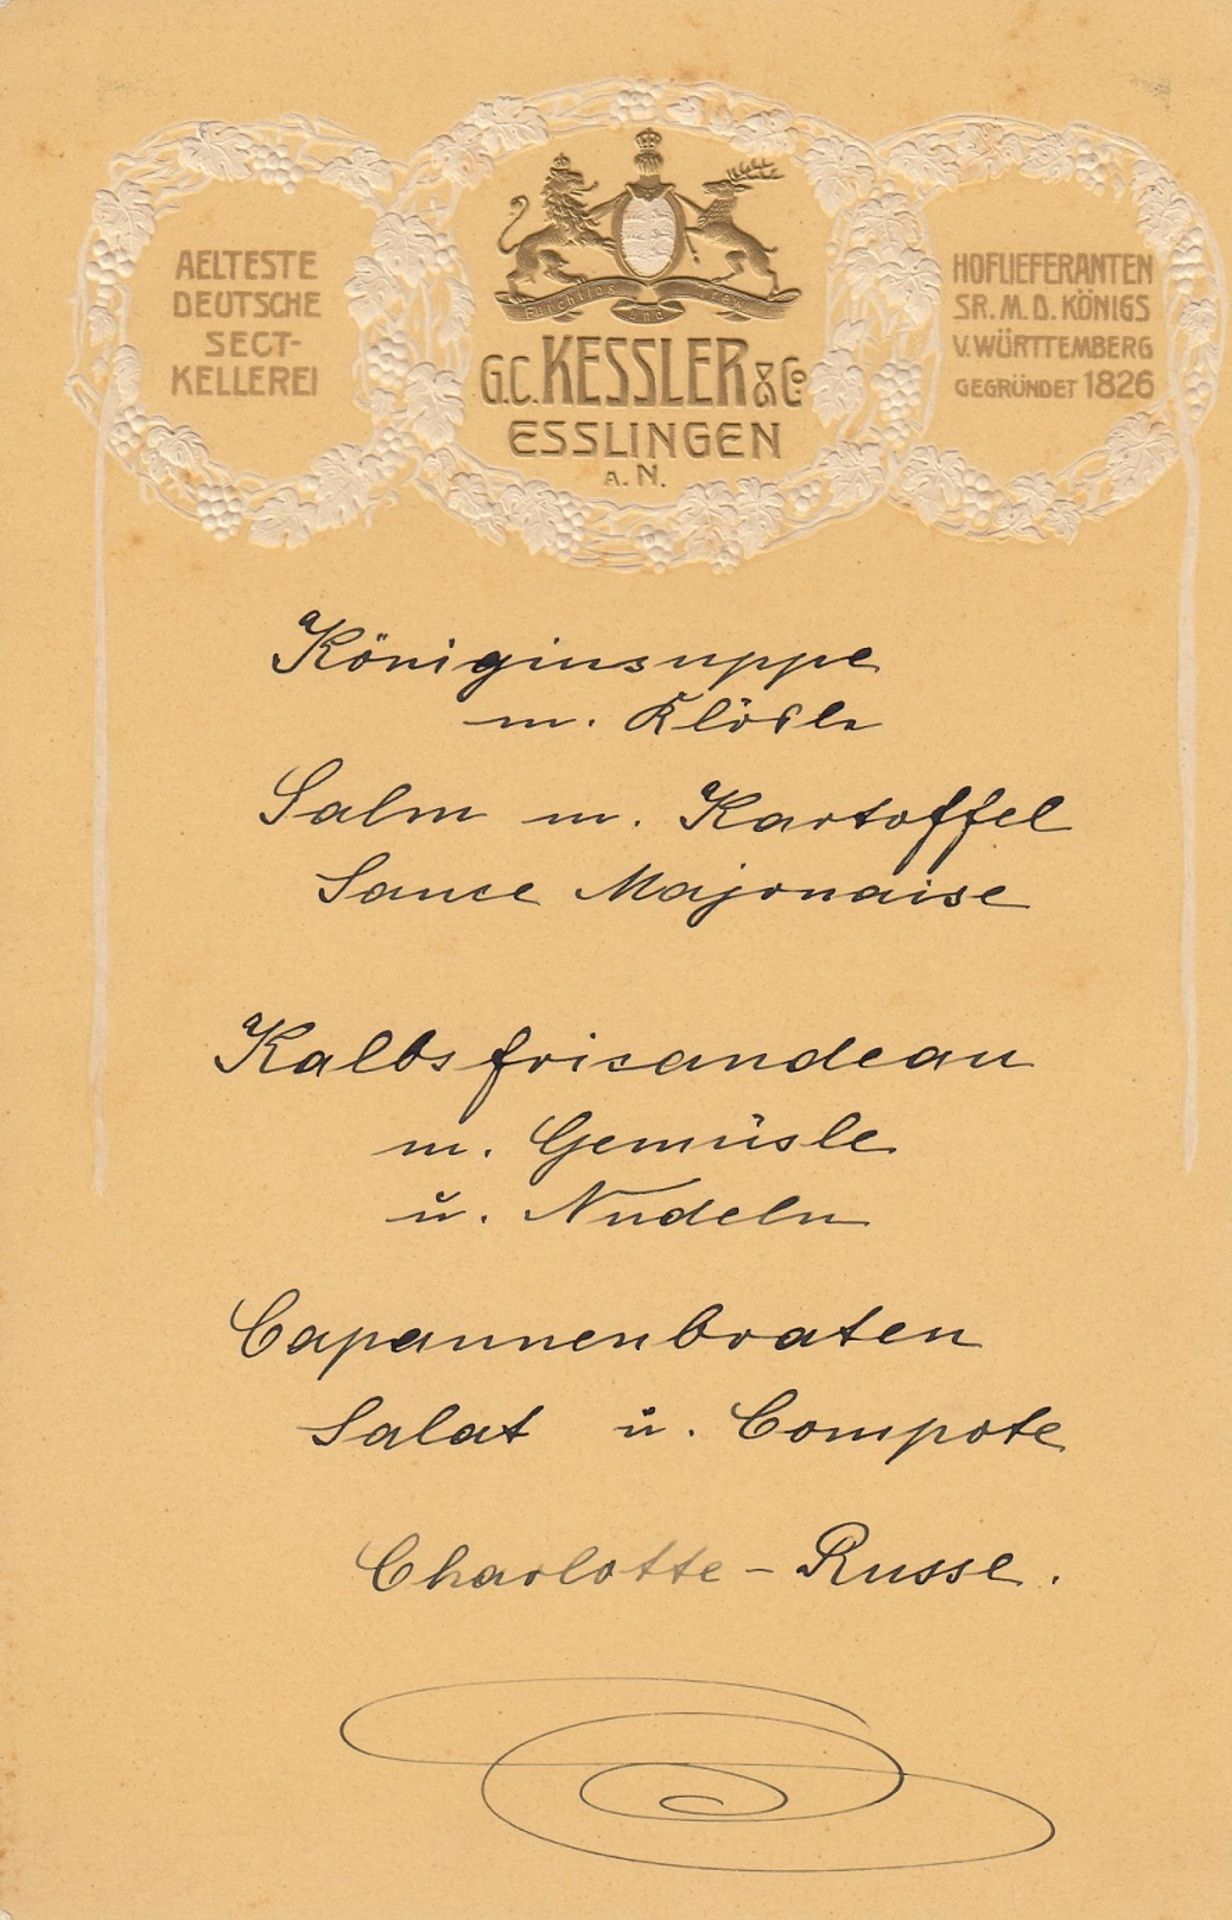 AELTESTE
DEUTSCHE
SECT-
KELLEREI
Furchtlos und trew
G.C. KESSLER & Co.
ESSLINGEN
A. N.
HOFLIEFERANTEN
SR. M. D. KÖNIGS
V. WÜRTTEMBERG
GEGRÜNDET 1826
Königinsuppe
m. Klösle
Salm m. Kartoffel
Sauce Majonaise
Kalbsfricandeau
m. Gemüsle
u. Nudeln
Capaunenbraten
Salat u. Compote
Charlotte - Russe.